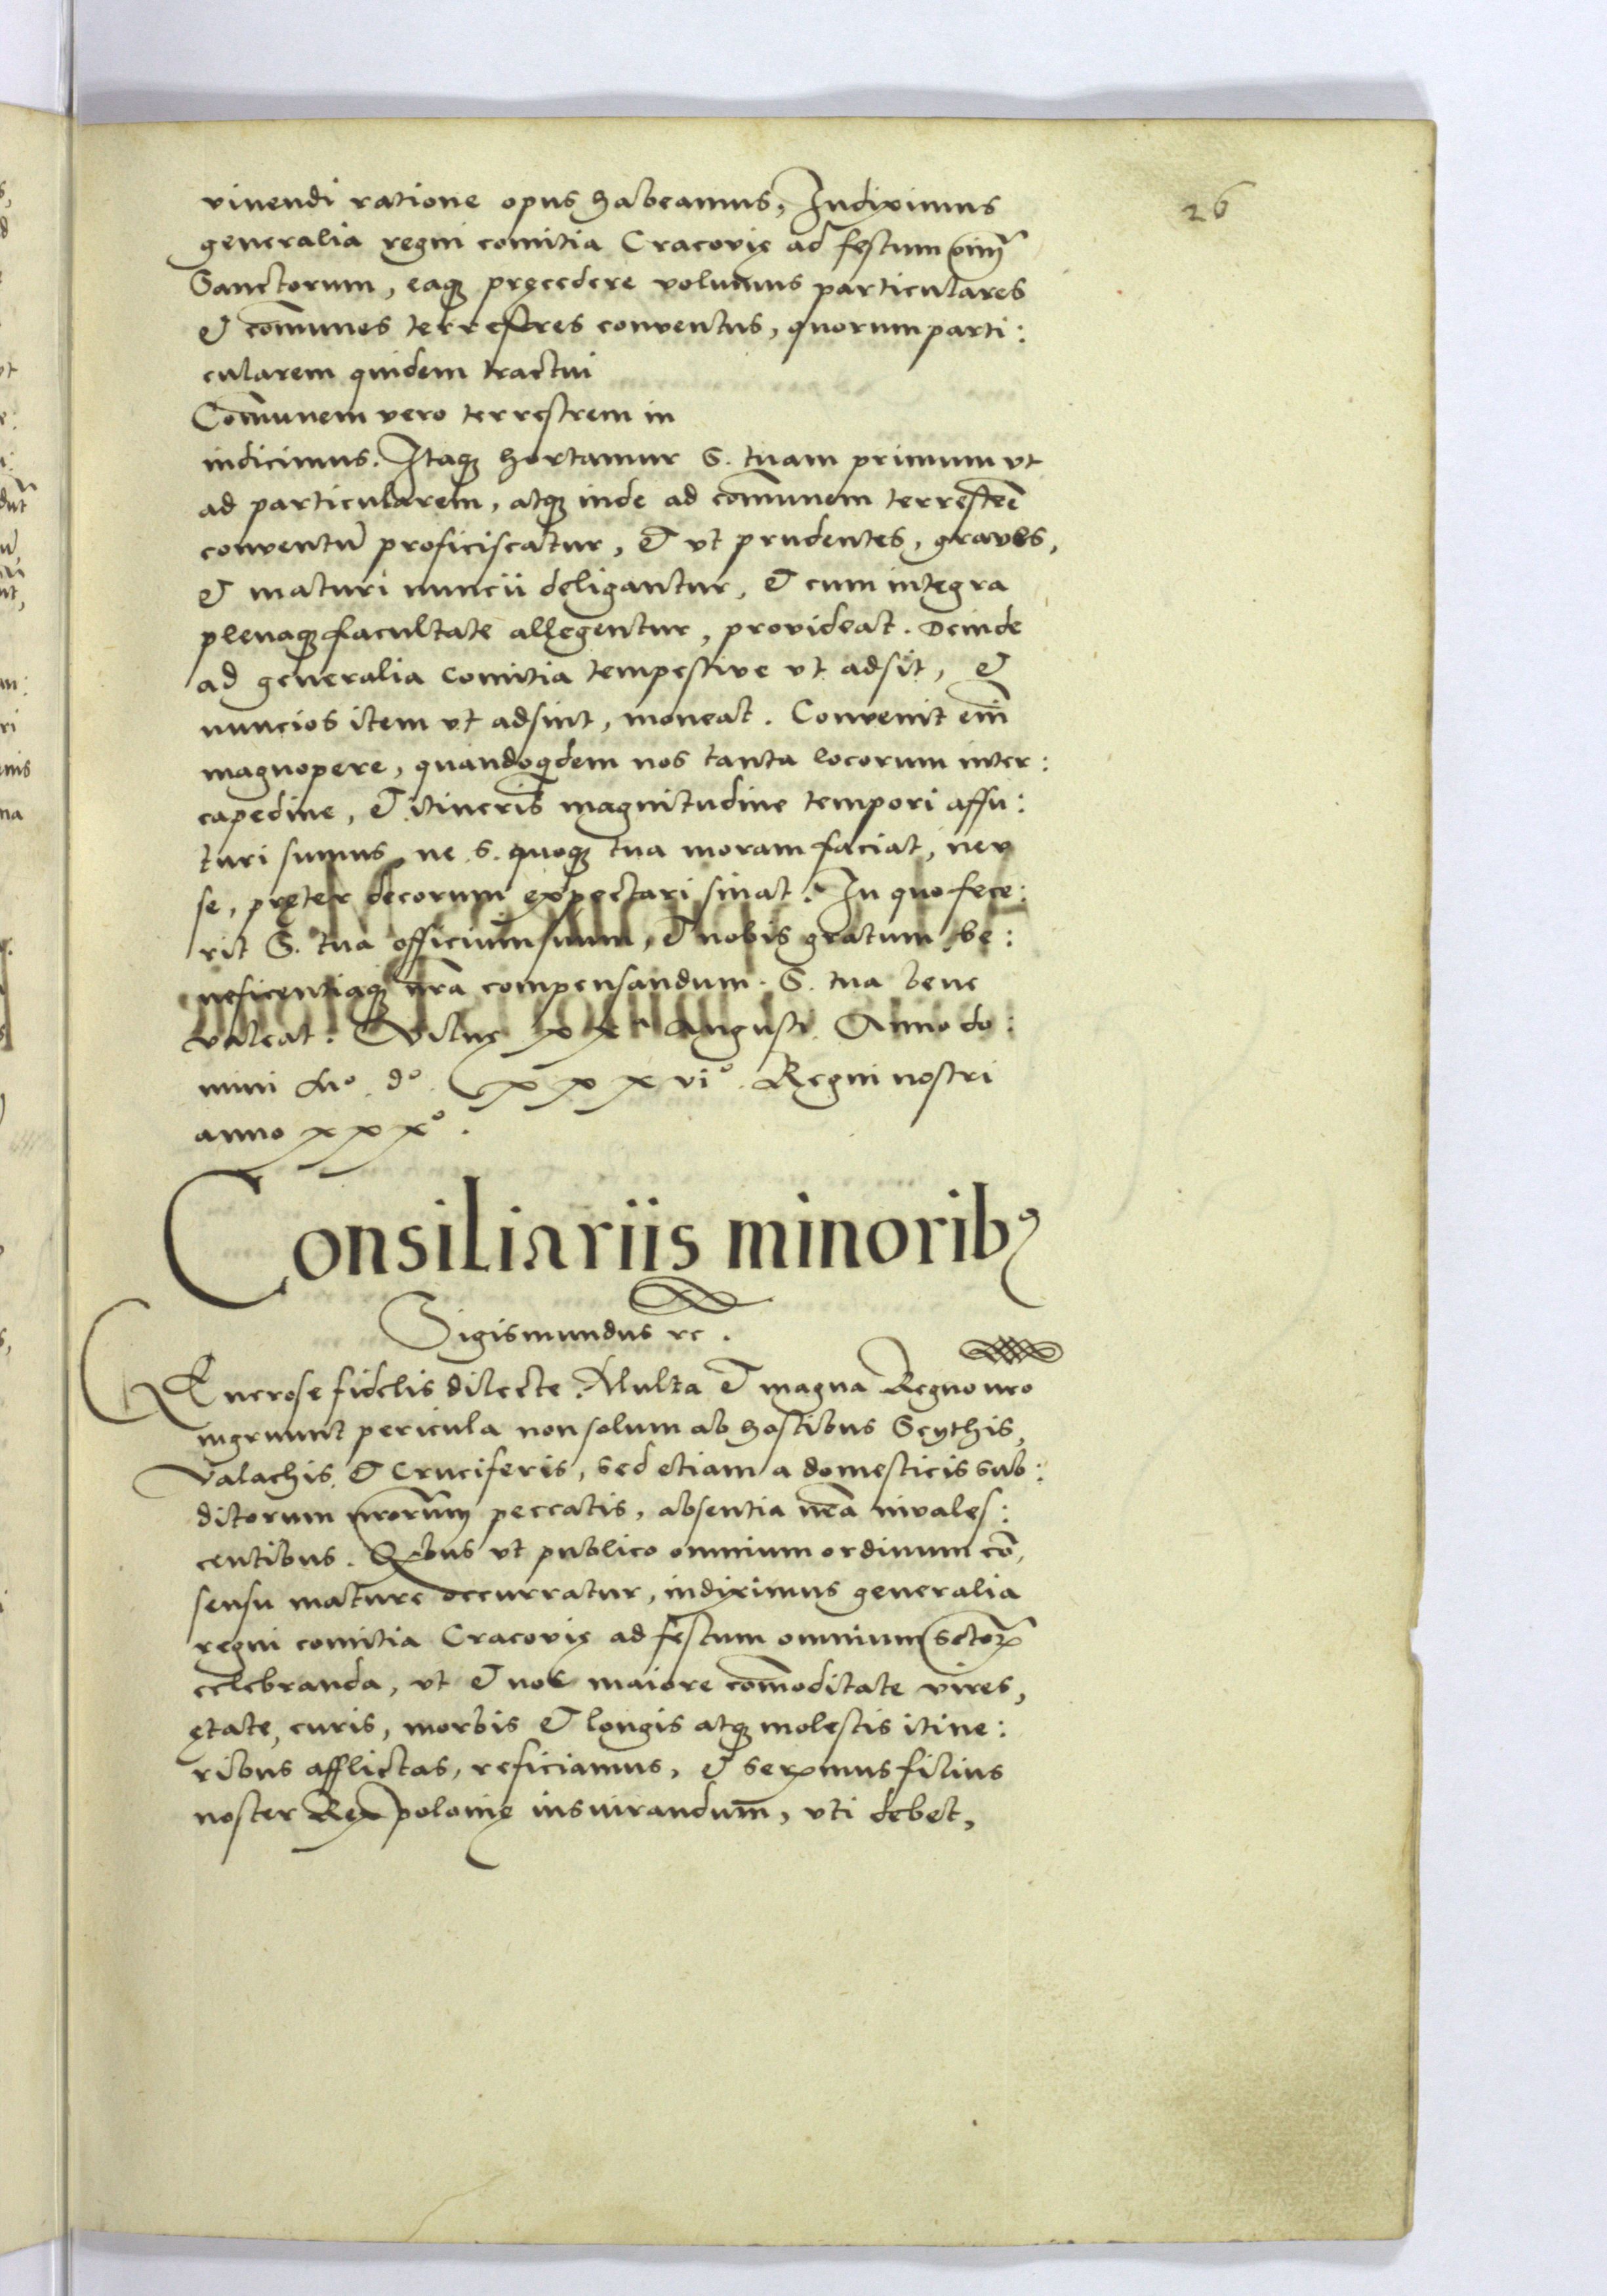 26
vivendi ratione opus habeamus, Indiximus
generalia regni comitia Cracovię ad festum oim̄
Sanctorum, eaqꝫ pręcedere volumus particulares
& com̄unes terrestres conventus, quorum parti:
cularem quidem tractui
Com̄unem vero terrestrem in
indicimus. Itaqꝫ hortamur S. tuam primum vt
ad particularem, atqꝫ inde ad com̄unem terrestrē
conventū proficiscatur, & vt prudentes, graves,
& maturi nuncii deligantur, & cum integra
plenaqꝫ facultate allegentur, provideat. Deinde
ad generalia comitia tempestive vt adsit, &
nuncios item vt adsint, moneat. Convenit eīm
magnopere, quandoqdem nos tanta locorum inter:
capedine, & itineris magnitudine tempori affu:
turi sumus ne S. quoqꝫ tua moram faciat, nev
se, pręter decorum expectari sinat. In quo fece:
rit S. tua officium suum, & nobis gratum be:
neficentiaqꝫ nr̄a compensandum. S. tua bene
valeat. Vilnę xxª Augusti Anno do:
mini Mº. dº. xxxviº. Regni nostri
anno xxxº.
Consiliariis minoribꝰ
Sigismundus rc.
Generose fidelis dilecte. Multa & magna Regno nro
ingruunt pericula non solum ab hostibus Scythis,
Valachis & Cruciferis, sed etiam a domesticis sub:
ditorum nrorum̄ peccatis, absentia nr̄a invales:
centibus. Qbus vt publico omnium ordinum cō,
sensu mature occurratur, indiximus generalia
regni comitia Cracovię ad festum omnium sctoꝝ
celebranda, vt & nos maiore com̄oditate vires,
ętate, curis, morbis & longis atqꝫ molestis itine:
ribus afflictas, reficiamus, & serᵐmus filius
noster Rex polonię iusiurandum̄, vti debet,